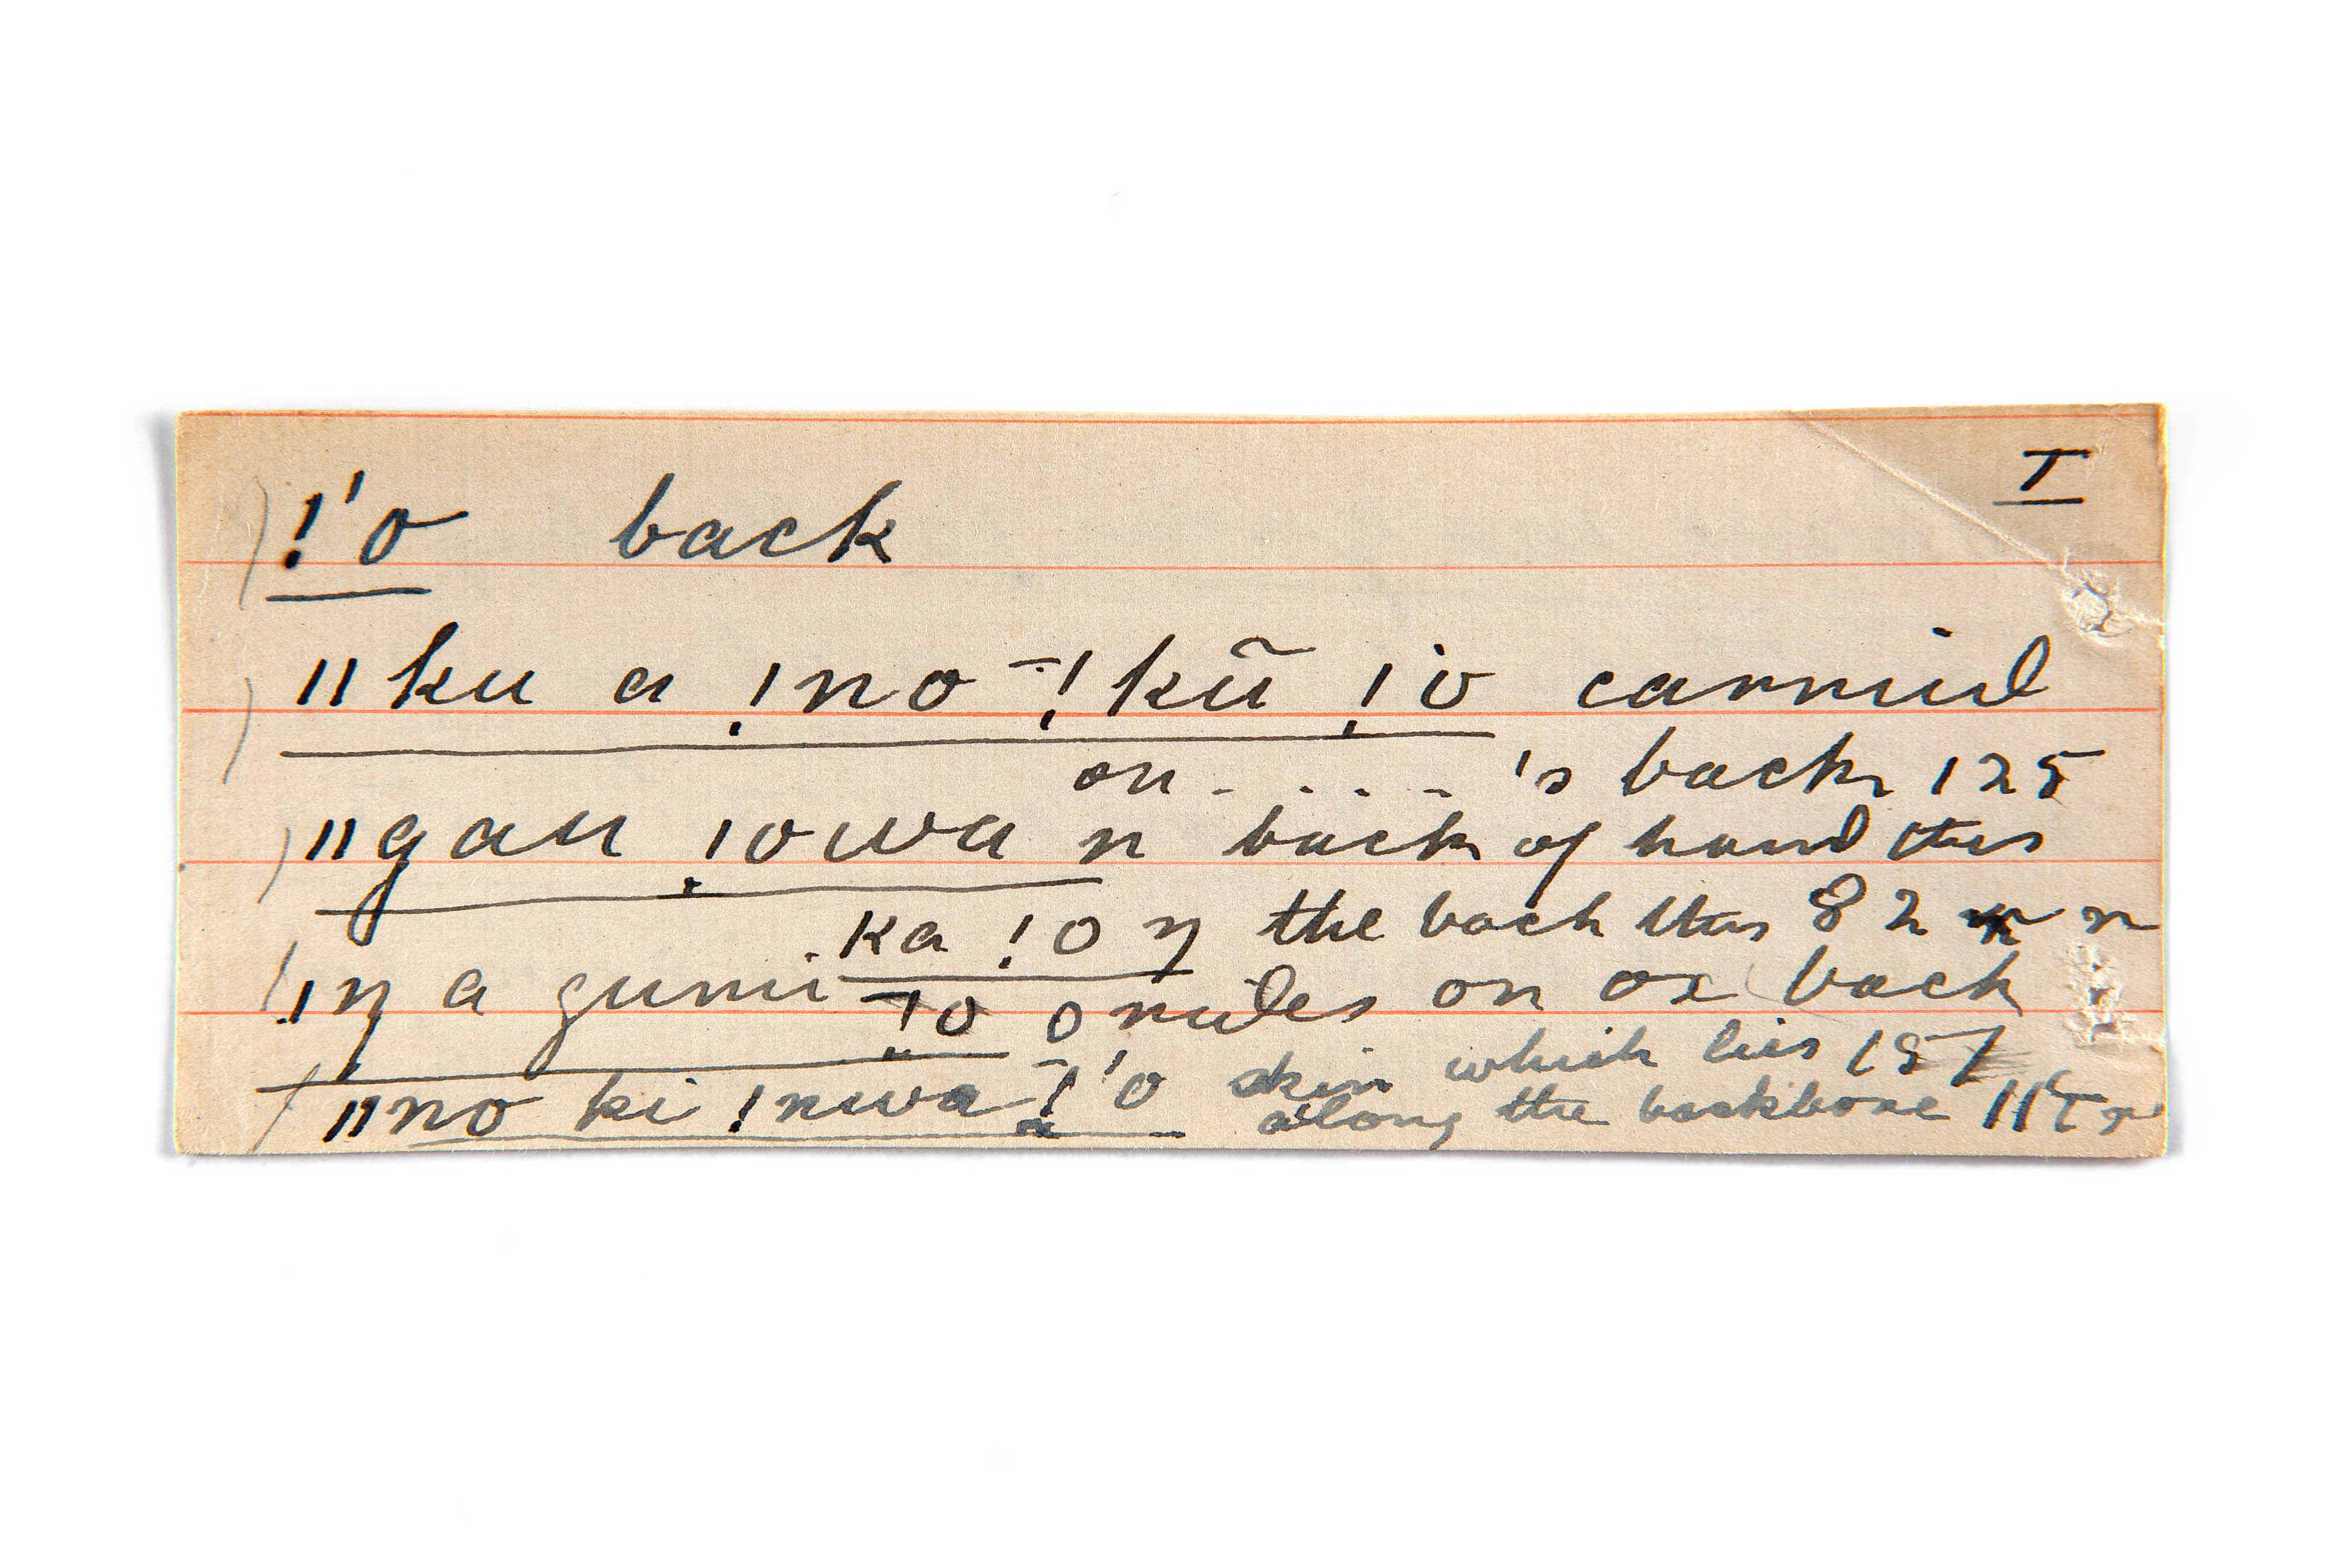 I
!'o back
ǁku a !no-!kũ !'o carried
on - . . . - 's back 125
ǁgau !owa n back of hand this
ka !o ŋ the back this 82 n
!ŋ a gumi-!o o rides on ox back
skin which lies 157
ǁno ki !nwa-!'o along the backbone